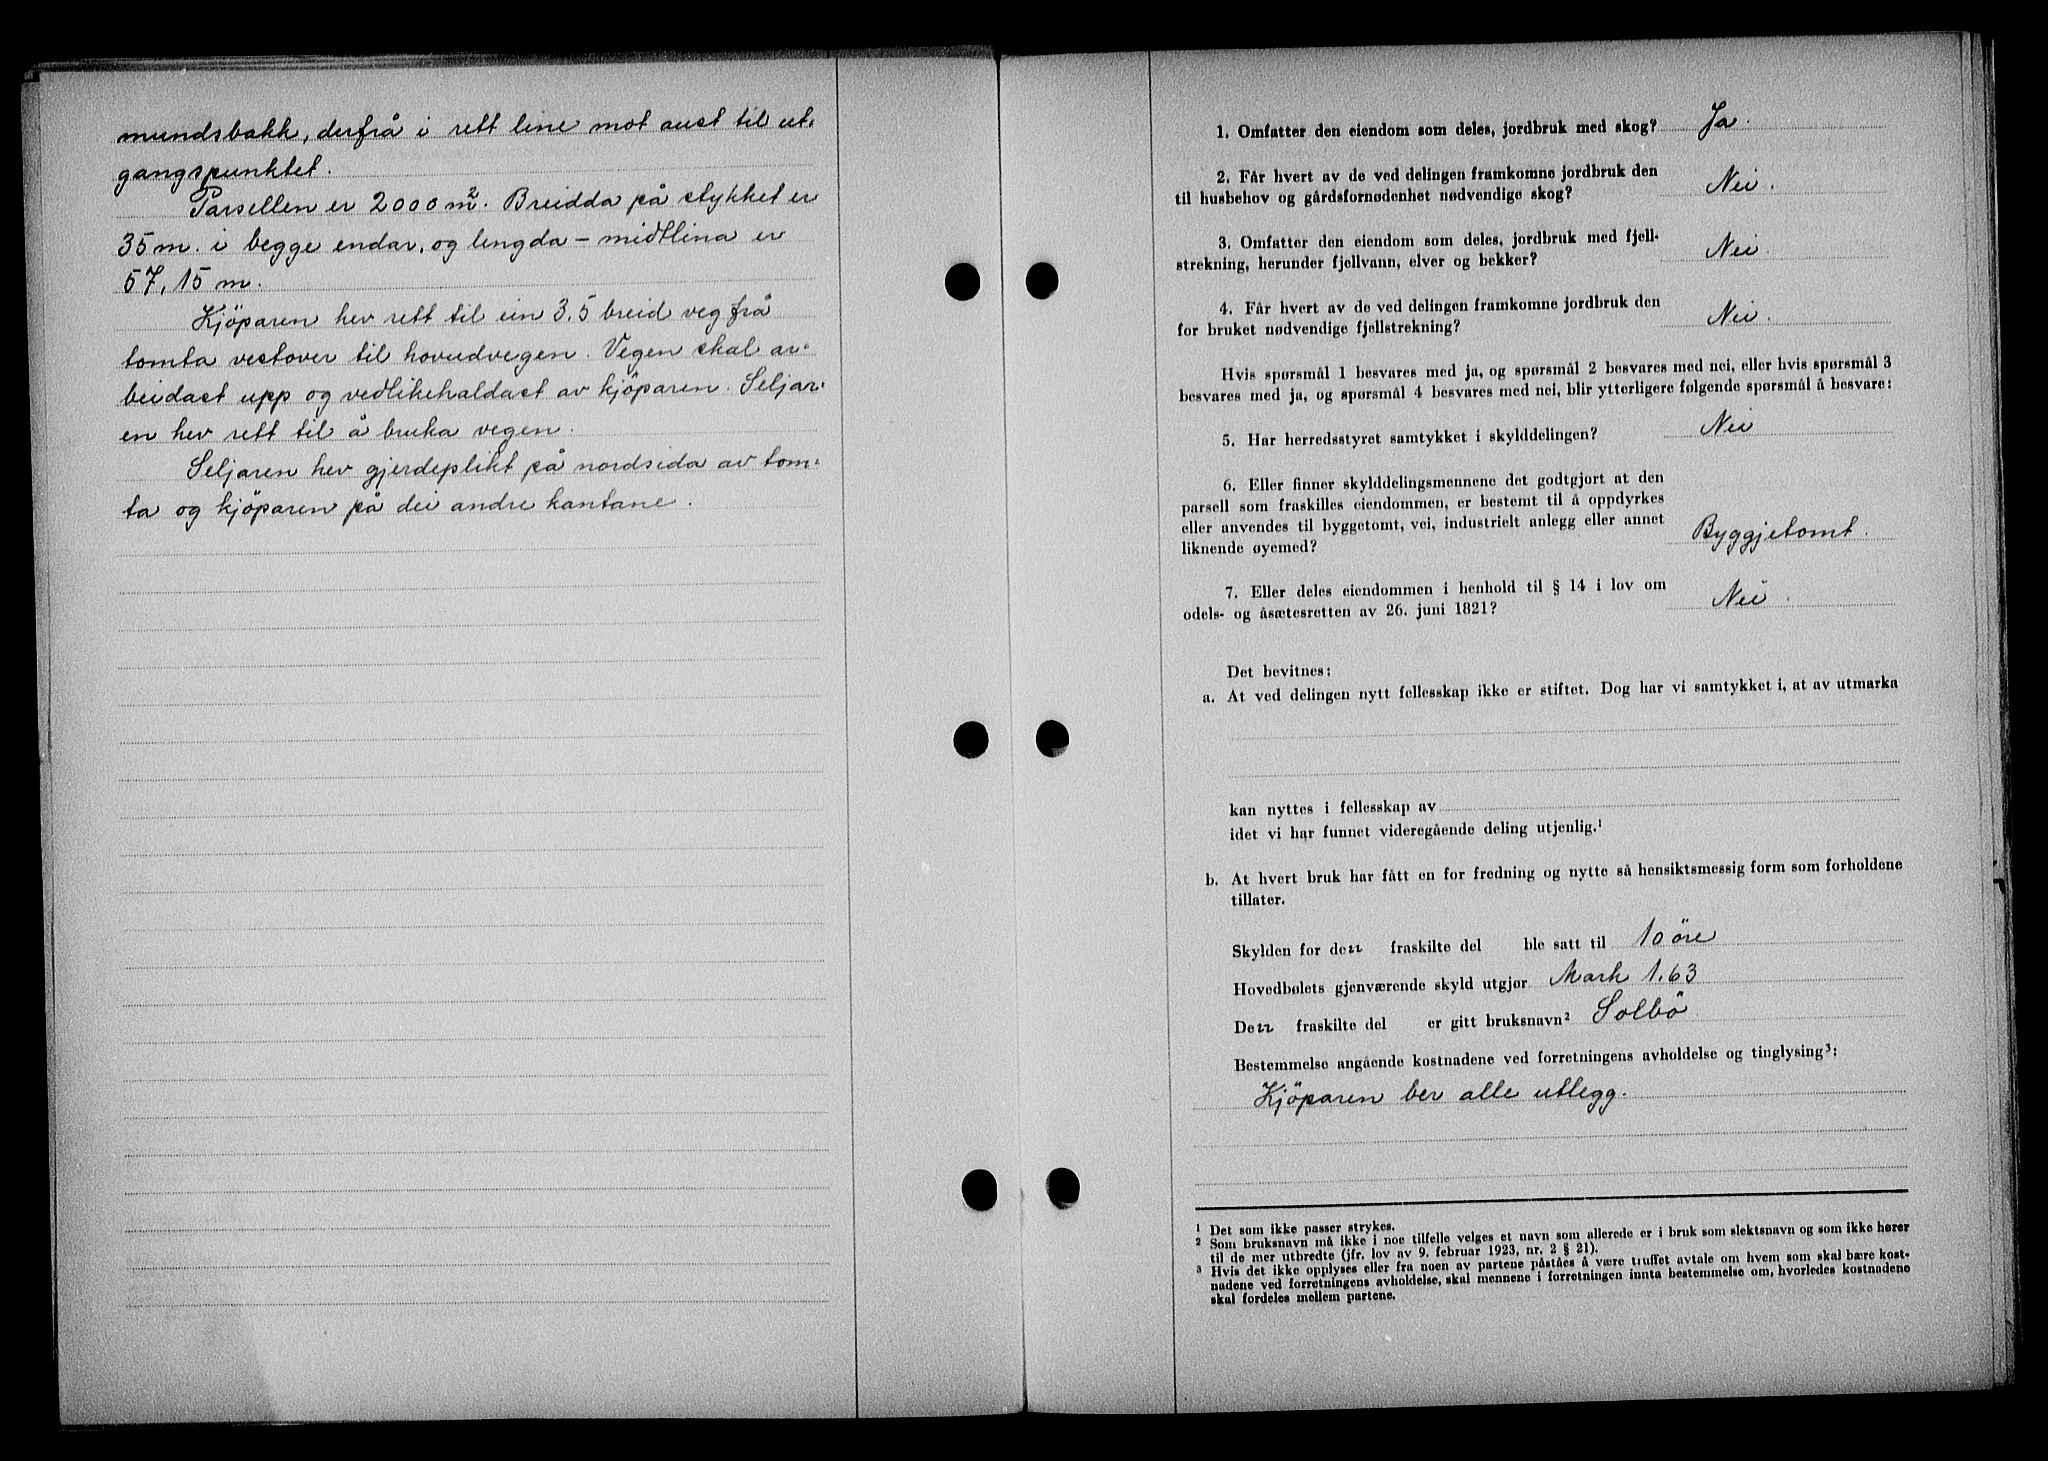 mundsbakk, derfrå i rett line mot aust til ut-
gangspunktet.
Parsellen er 2000 m². Breidda på stykket er
35 m. i begge endar, og lengda - midtlina er
57,15 m.
Kjöparen hev rett til ein 3.5 breid veg frå
tomta vestover til hovudvegen. Vegen skal ar-
beidast upp og vedlikehaldast av kjöparen. Seljar-
en hev rett til å bruka vegen.
Seljaren hev gjerdeplikt på nordsida av tom-
ta og kjöparen på dei andre kantane.
1. Omfatter den eiendom som deles, jordbruk med skog? Ja.
2. Får hvert av de ved delingen framkomne jordbruk den
til husbehov og gårdsfornødenhet nødvendige skog? Nei.
3. Omfatter den eiendom som deles, jordbruk med fjell-
strekning, herunder fjellvann, elver og bekker? Nei.
4. Får hvert av de ved delingen framkomne jordbruk den
for bruket nødvendige fjellstrekning? Nei.
Hvis spørsmål 1 besvares med ja, og spørsmål 2 besvares med nei, eller hvis spørsmål 3
besvares med ja, og spørsmål 4 besvares med nei, blir ytterligere følgende spørsmål å besvare:
5. Har herredsstyret samtykket i skylddelingen? Nei
6. Eller finner skylddelingsmennene det godtgjort at den
parsell som fraskilles eiendommen, er bestemt til å oppdyrkes
eller anvendes til byggetomt, vei, industrielt anlegg eller annet
liknende øyemed? Byggjetomt.
7. Eller deles eiendommen i henhold til § 14 i lov om
odels- og åsætesretten av 26. juni 1821? Nei.
Det bevitnes:
a. At ved delingen nytt fellesskap ikke er stiftet. Dog har vi samtykket i, at av utmarka
kan nyttes i fellesskap av
idet vi har funnet videregående deling utjenlig.¹
b. At hvert bruk har fått en for fredning og nytte så hensiktsmessig form som forholdene
tillater.
Skylden for den fraskilte del ble satt til 10 öre
Hovedbølets gjenværende skyld utgjør Mark 1.63
Den fraskilte del er gitt bruksnavn² Solbö
Bestemmelse angående kostnadene ved forretningens avholdelse og tinglysing³:
Kjöparen ber alle utlegg.
¹ Det som ikke passer strykes.
² Som bruksnavn må ikke i noe tilfelle velges et navn som allerede er i bruk som slektsnavn og som ikke hører
til de mer utbredte (jfr. lov av 9. februar 1923, nr. 2 § 21).
³ Hvis det ikke opplyses eller fra noen av partene påståes å være truffet avtale om hvem som skal bære kost-
nadene ved forretningens avholdelse, skal mennene i forretningen innta bestemmelse om, hvorledes kostnadene
skal fordeles mellem partene.